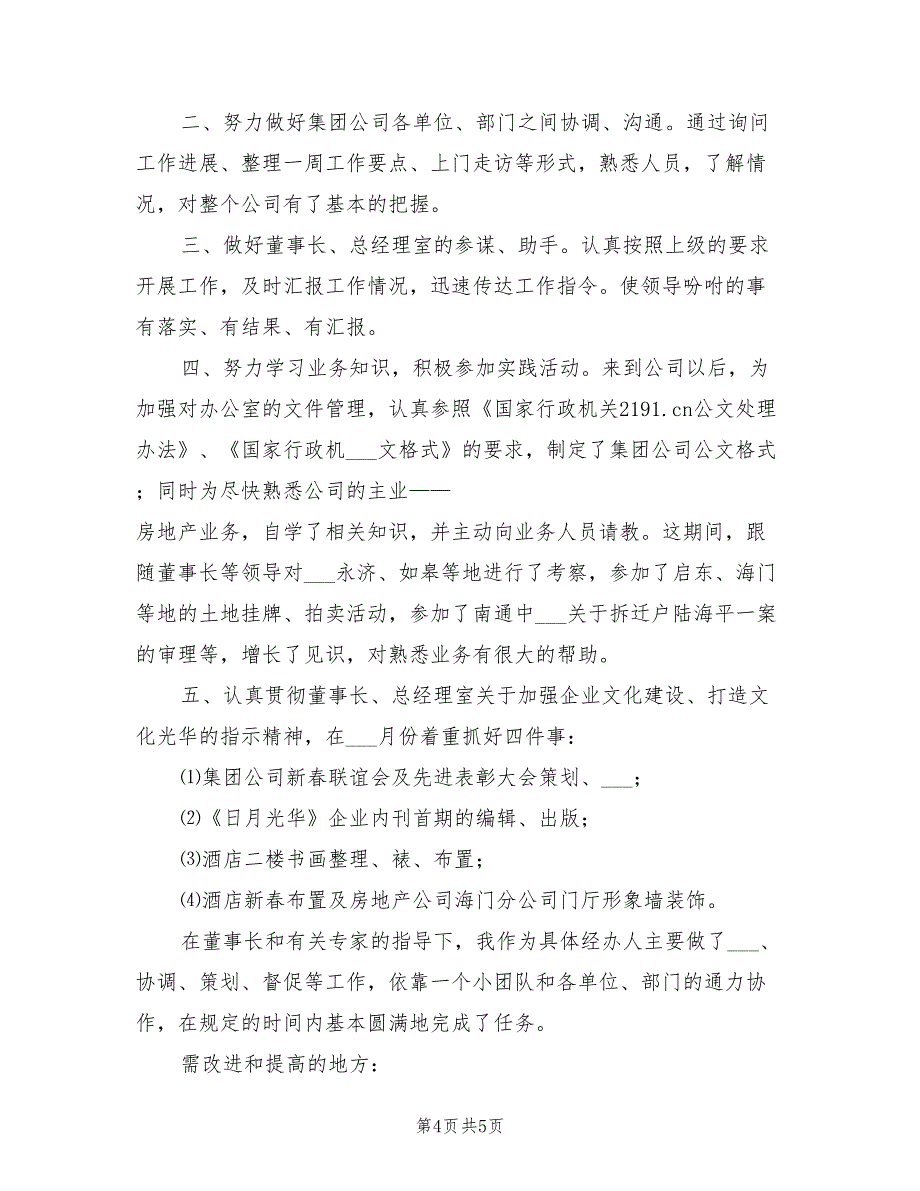 二、努力做好集团公司各单位、部门之间协调、沟通。通过询问
工作进展、整理一周工作要点、上门走访等形式，熟悉人员，了解情
况，对整个公司有了基本的把握。
三、做好董事长、总经理室的参谋、助手。认真按照上级的要求
开展工作，及时汇报工作情况，迅速传达工作指令。使领导吩咐的事
有落实、有结果、有汇报。
四、努力学习业务知识，积极参加实践活动。来到公司以后，为
加强对办公室的文件管理，认真参照《国家行政机关2191.cn公文处理
办法》、《国家行政机___文格式》的要求，制定了集团公司公文格式
；同时为尽快熟悉公司的主业——
房地产业务，自学了相关知识，并主动向业务人员请教。这期间，跟
随董事长等领导对___永济、如皋等地进行了考察，参加了启东、海门
等地的土地挂牌、拍卖活动，参加了南通中___关于拆迁户陆海平一案
的审理等，增长了见识，对熟悉业务有很大的帮助。
五、认真贯彻董事长、总经理室关于加强企业文化建设、打造文
化光华的指示精神，在___月份着重抓好四件事：
⑴集团公司新春联谊会及先进表彰大会策划、___；
⑵《日月光华》企业内刊首期的编辑、出版；
⑶酒店二楼书画整理、裱、布置；
⑷酒店新春布置及房地产公司海门分公司门厅形象墙装饰。
在董事长和有关专家的指导下，我作为具体经办人主要做了___、
协调、策划、督促等工作，依靠一个小团队和各单位、部门的通力协
作，在规定的时间内基本圆满地完成了任务。
需改进和提高的地方：
第4页共5页